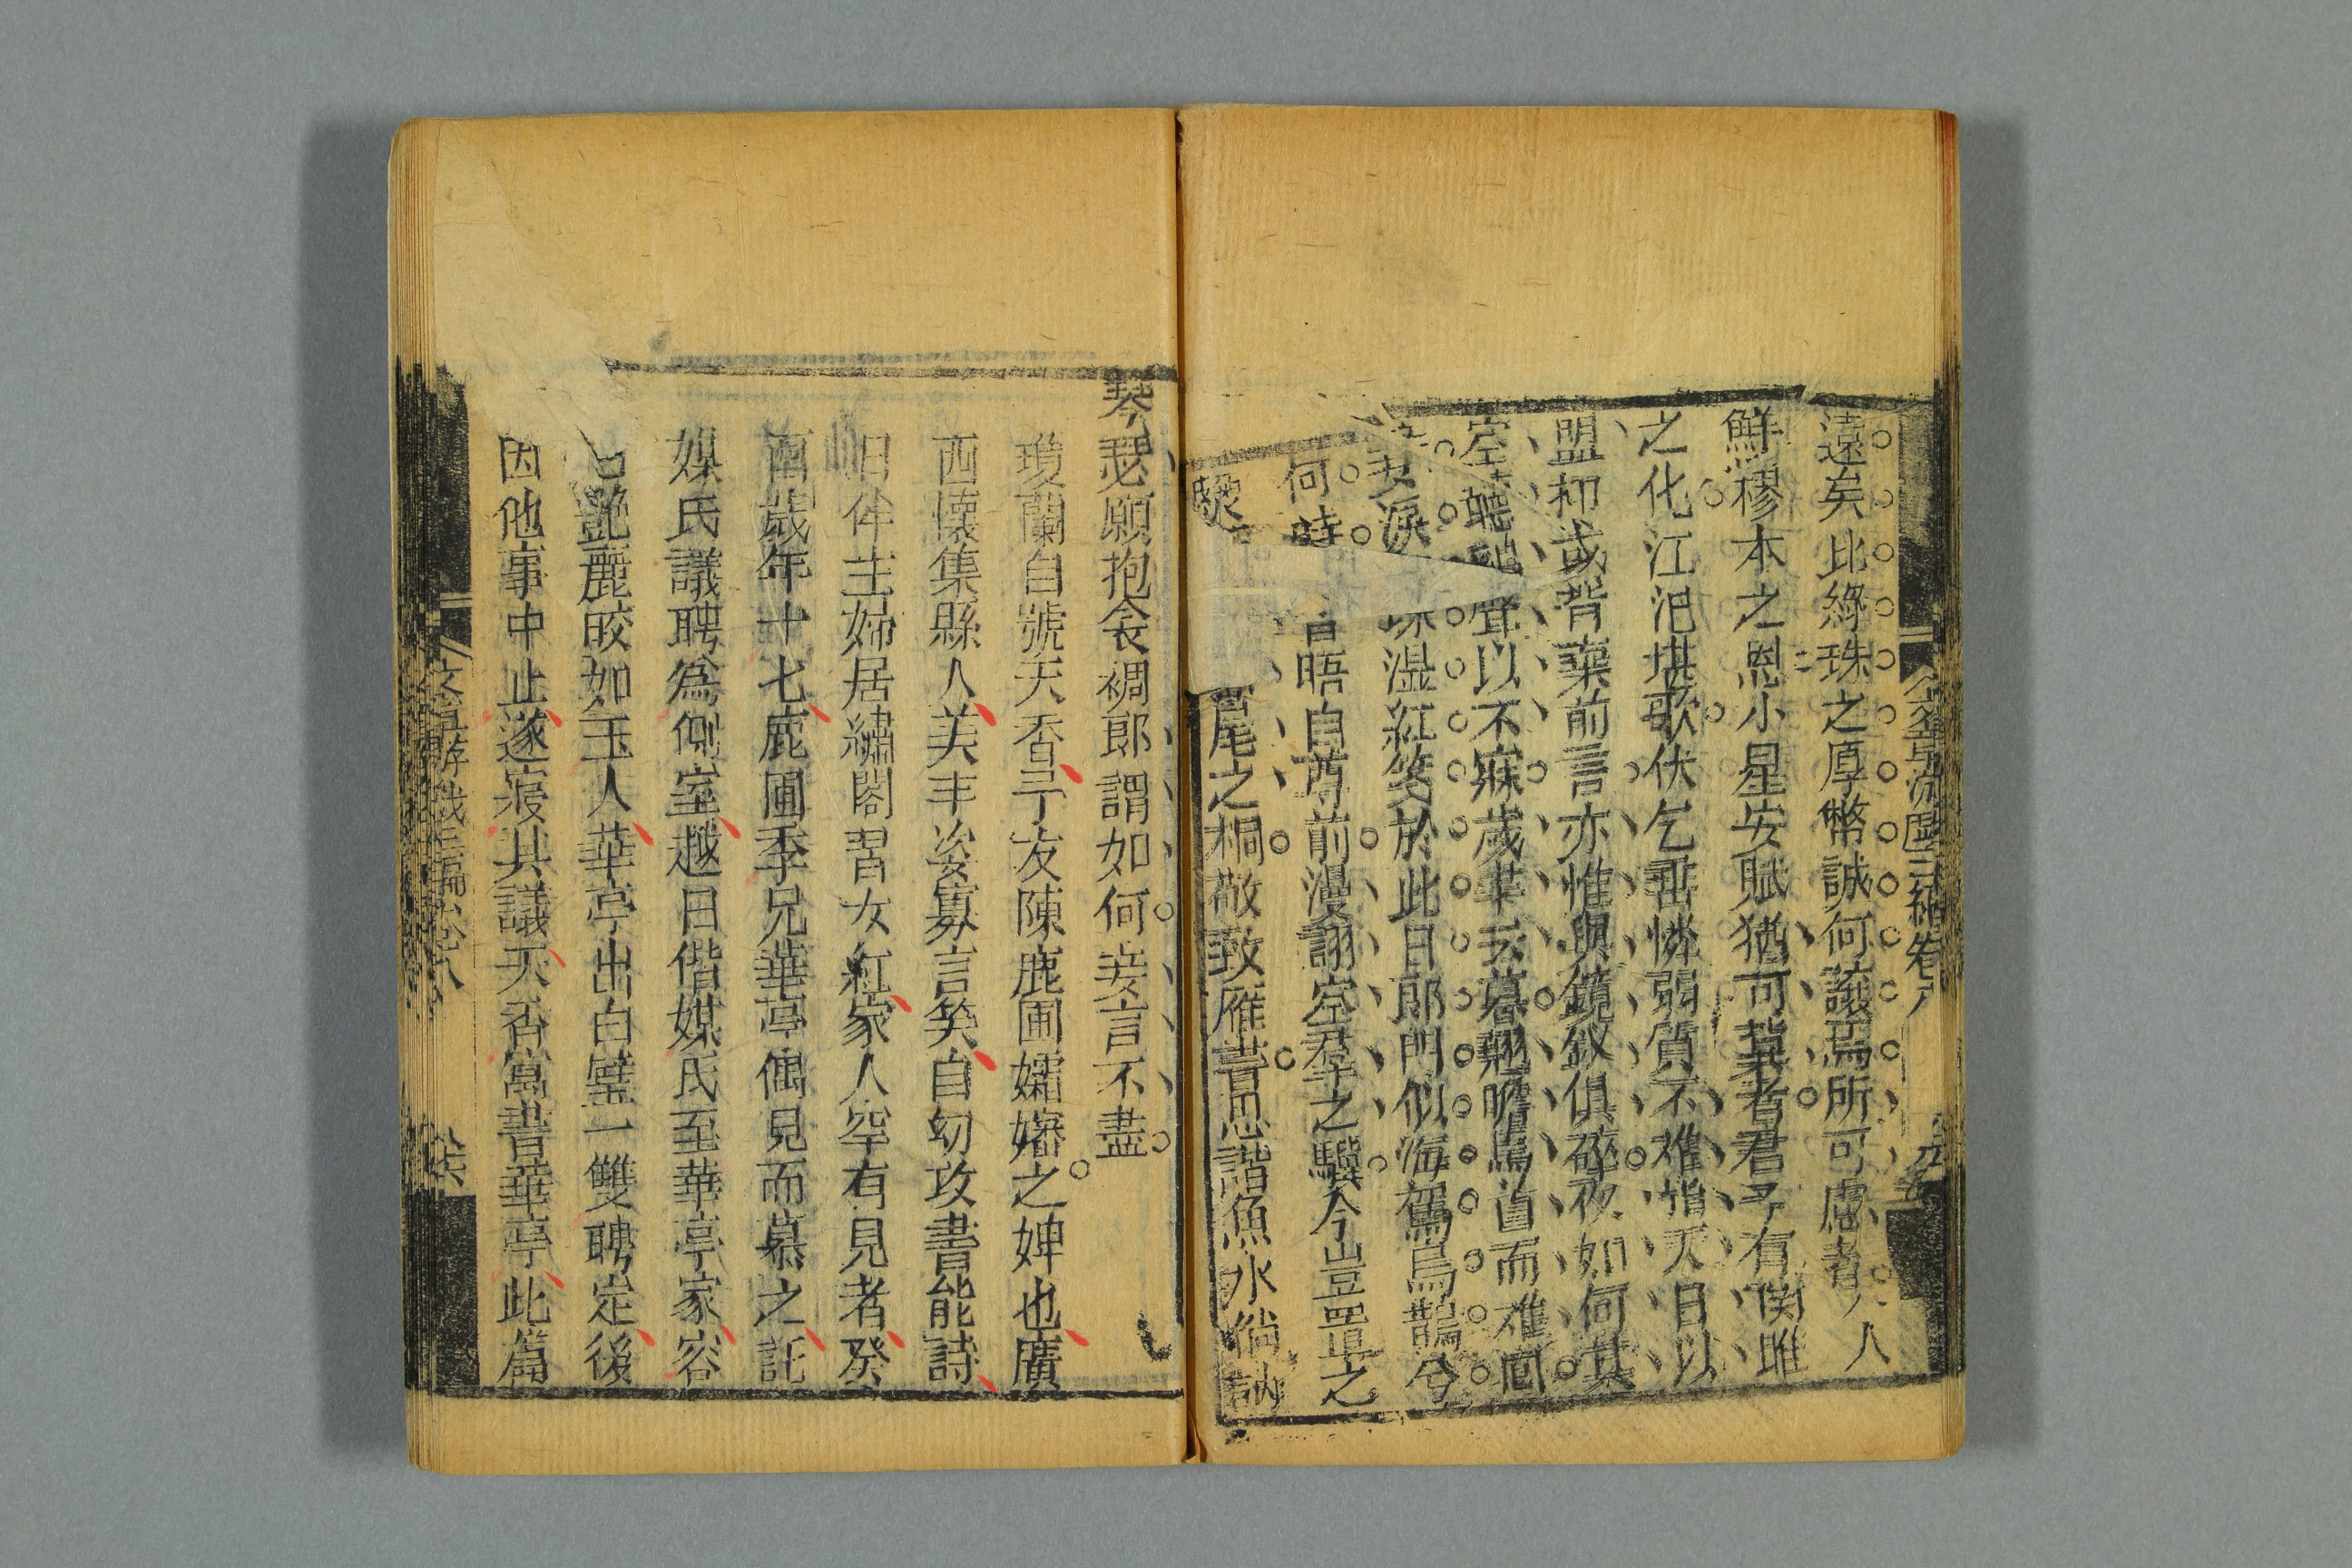 遠矣比綠珠之厚幣誠何讓焉所可慮者人
鮮樛木之恩小星安賦猶可冀者君子有関雎
之化江汜堪歌伏乞垂憐弱質不難指天日以
盟抑或背棄前言亦惟與鏡釵俱碎夜如何其
空聽 聲以不寐歲聿云暮翹瞻鳥道而難囘
妾淚 湿紅箋於此日郎門似海駕烏鵲兮
何時 言晤自尊前漫詡空羣之驥今豈罝之
尾之桐敬致雁書思諧魚水倘訥
琴瑟願抱衾裯郎謂如何妾言不盡
瓊蘭自號天香予友陳鹿圃孀嬸之婢也廣
西懷集縣人美丰姿寡言笑自幼攻書能詩
旧伴主婦居繡閣習女紅家人罕有見者癸
酉歲年十七鹿圃季兄華亭偶見而慕之託
媒氏議聘爲側室越日偕媒氏至華亭家容
色艶麗皎如玉人華亭出白璧一雙聘定後
因他事中止遂寢其議天香寓書華亭此篇